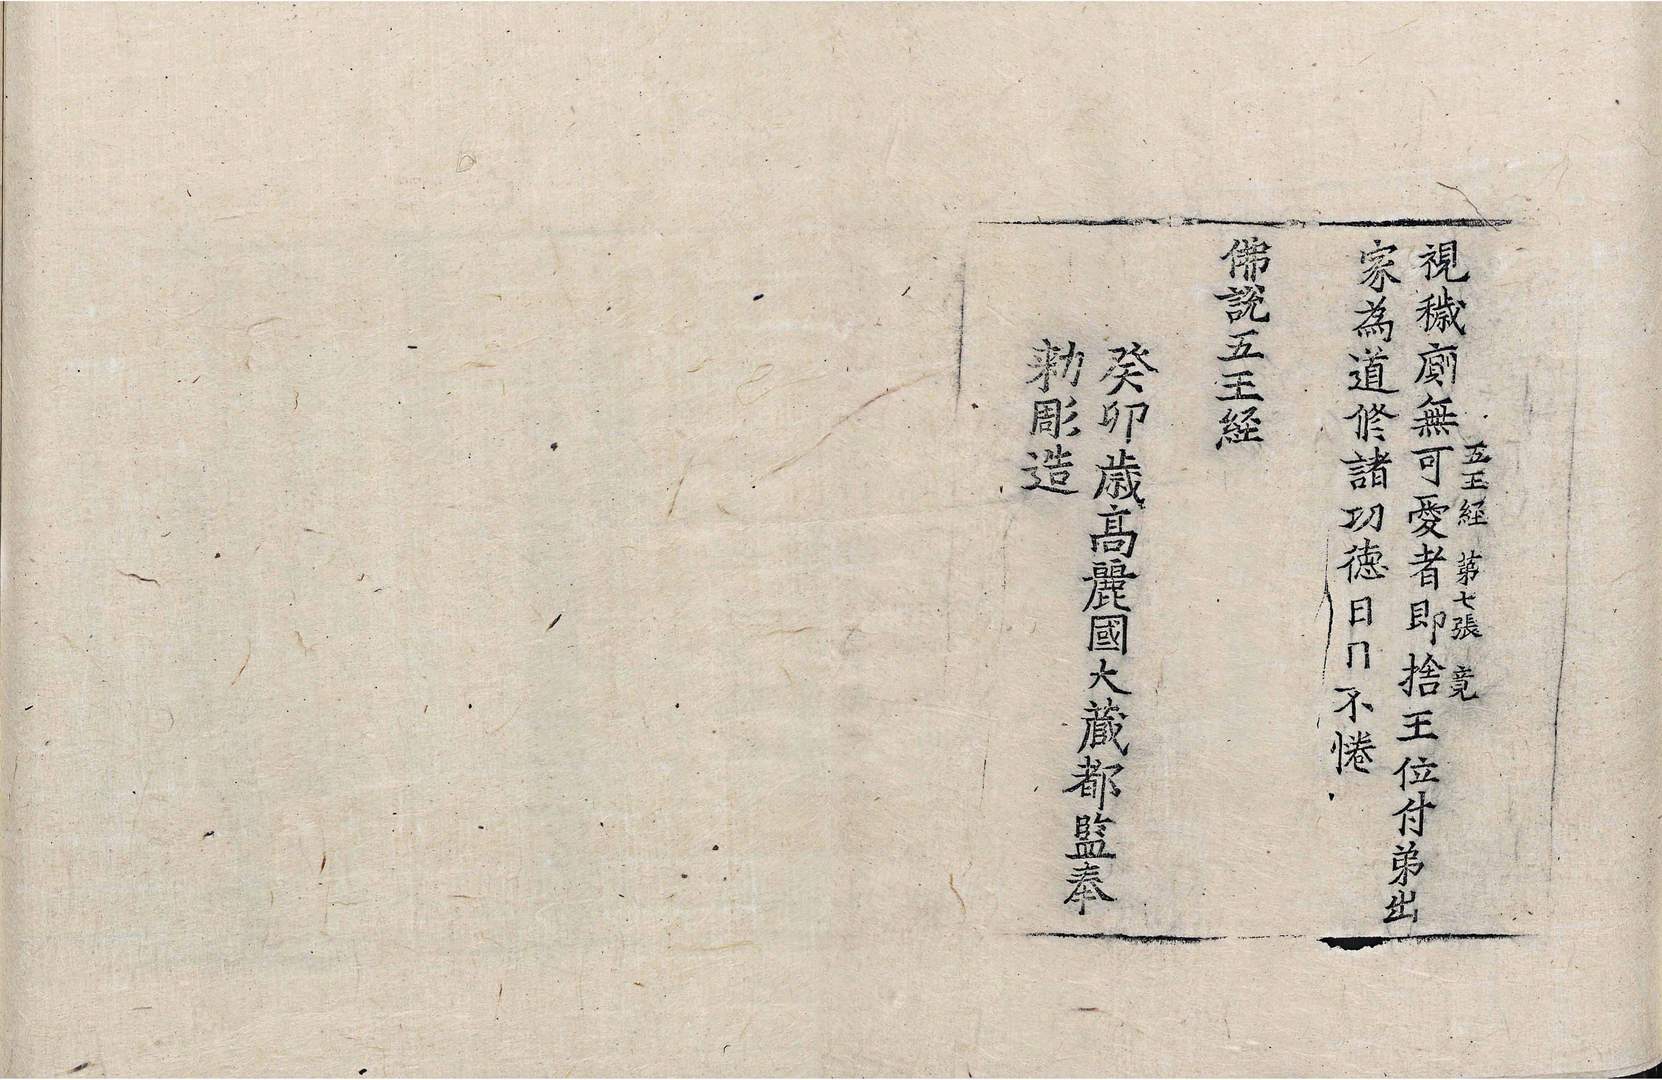 五王経 第七張 竟
視穢廁無可愛者即捨王位付弟出
家為道修諸功德日日不惓
佛說五王経
癸卯歳高麗國大藏都監奉
勑彫造